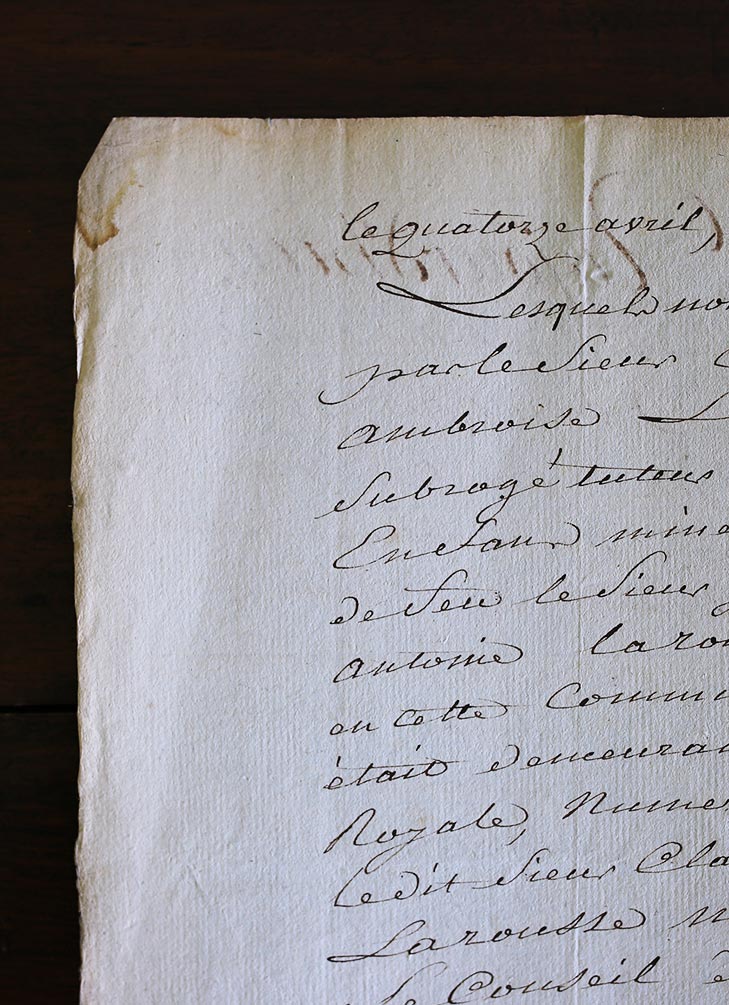 le quatorze avril,
Lesquels no
par le Sieur
ambroise L
Subrogé tuteur
Enfans mine
de feu le Sieur
antoine larou
en cette Commu
était demeuran
Royale, Numer
ledit Sieur Cla
Larousse n
le Conseil